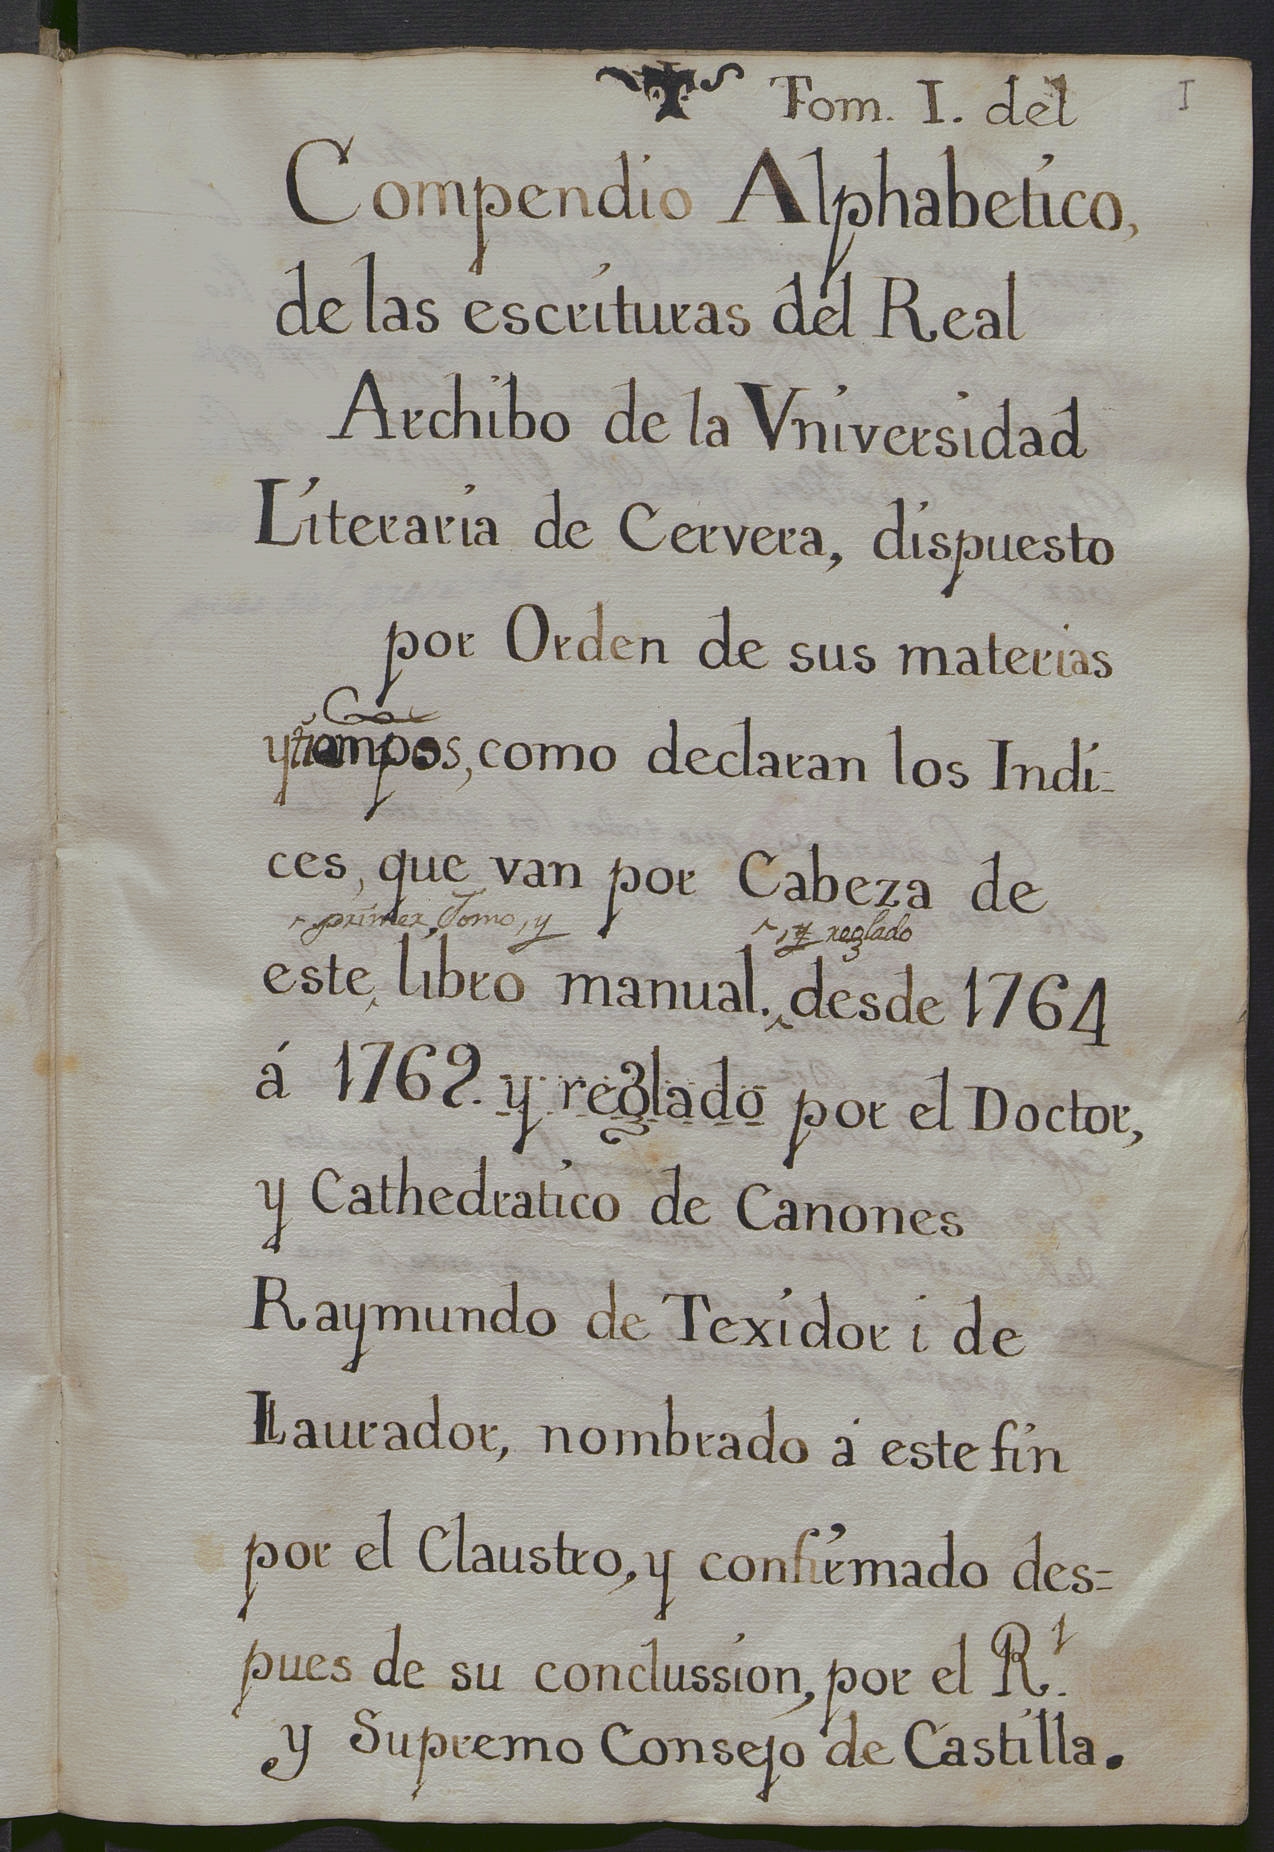 Tom. I. del
I
Compendio Alphabetico,
de las escrituras del Real
Archibo de la Vniversidad
Literaria de Cervera, dispuesto
por Orden de sus materias
y tiempos, como declaran los Indi-
ces, que van por Cabeza de
primer Tomo, y , y reglado
este libro manual. desde 1764
á 1762. y reglado por el Doctor,
y Cathedratico de Canones
Raymundo de Texidor i de
Llaurador, nombrado á este fin
por el Claustro, y confirmado des=
pues de su conclussion, por el R.l
y Supremo Consejo de Castilla.